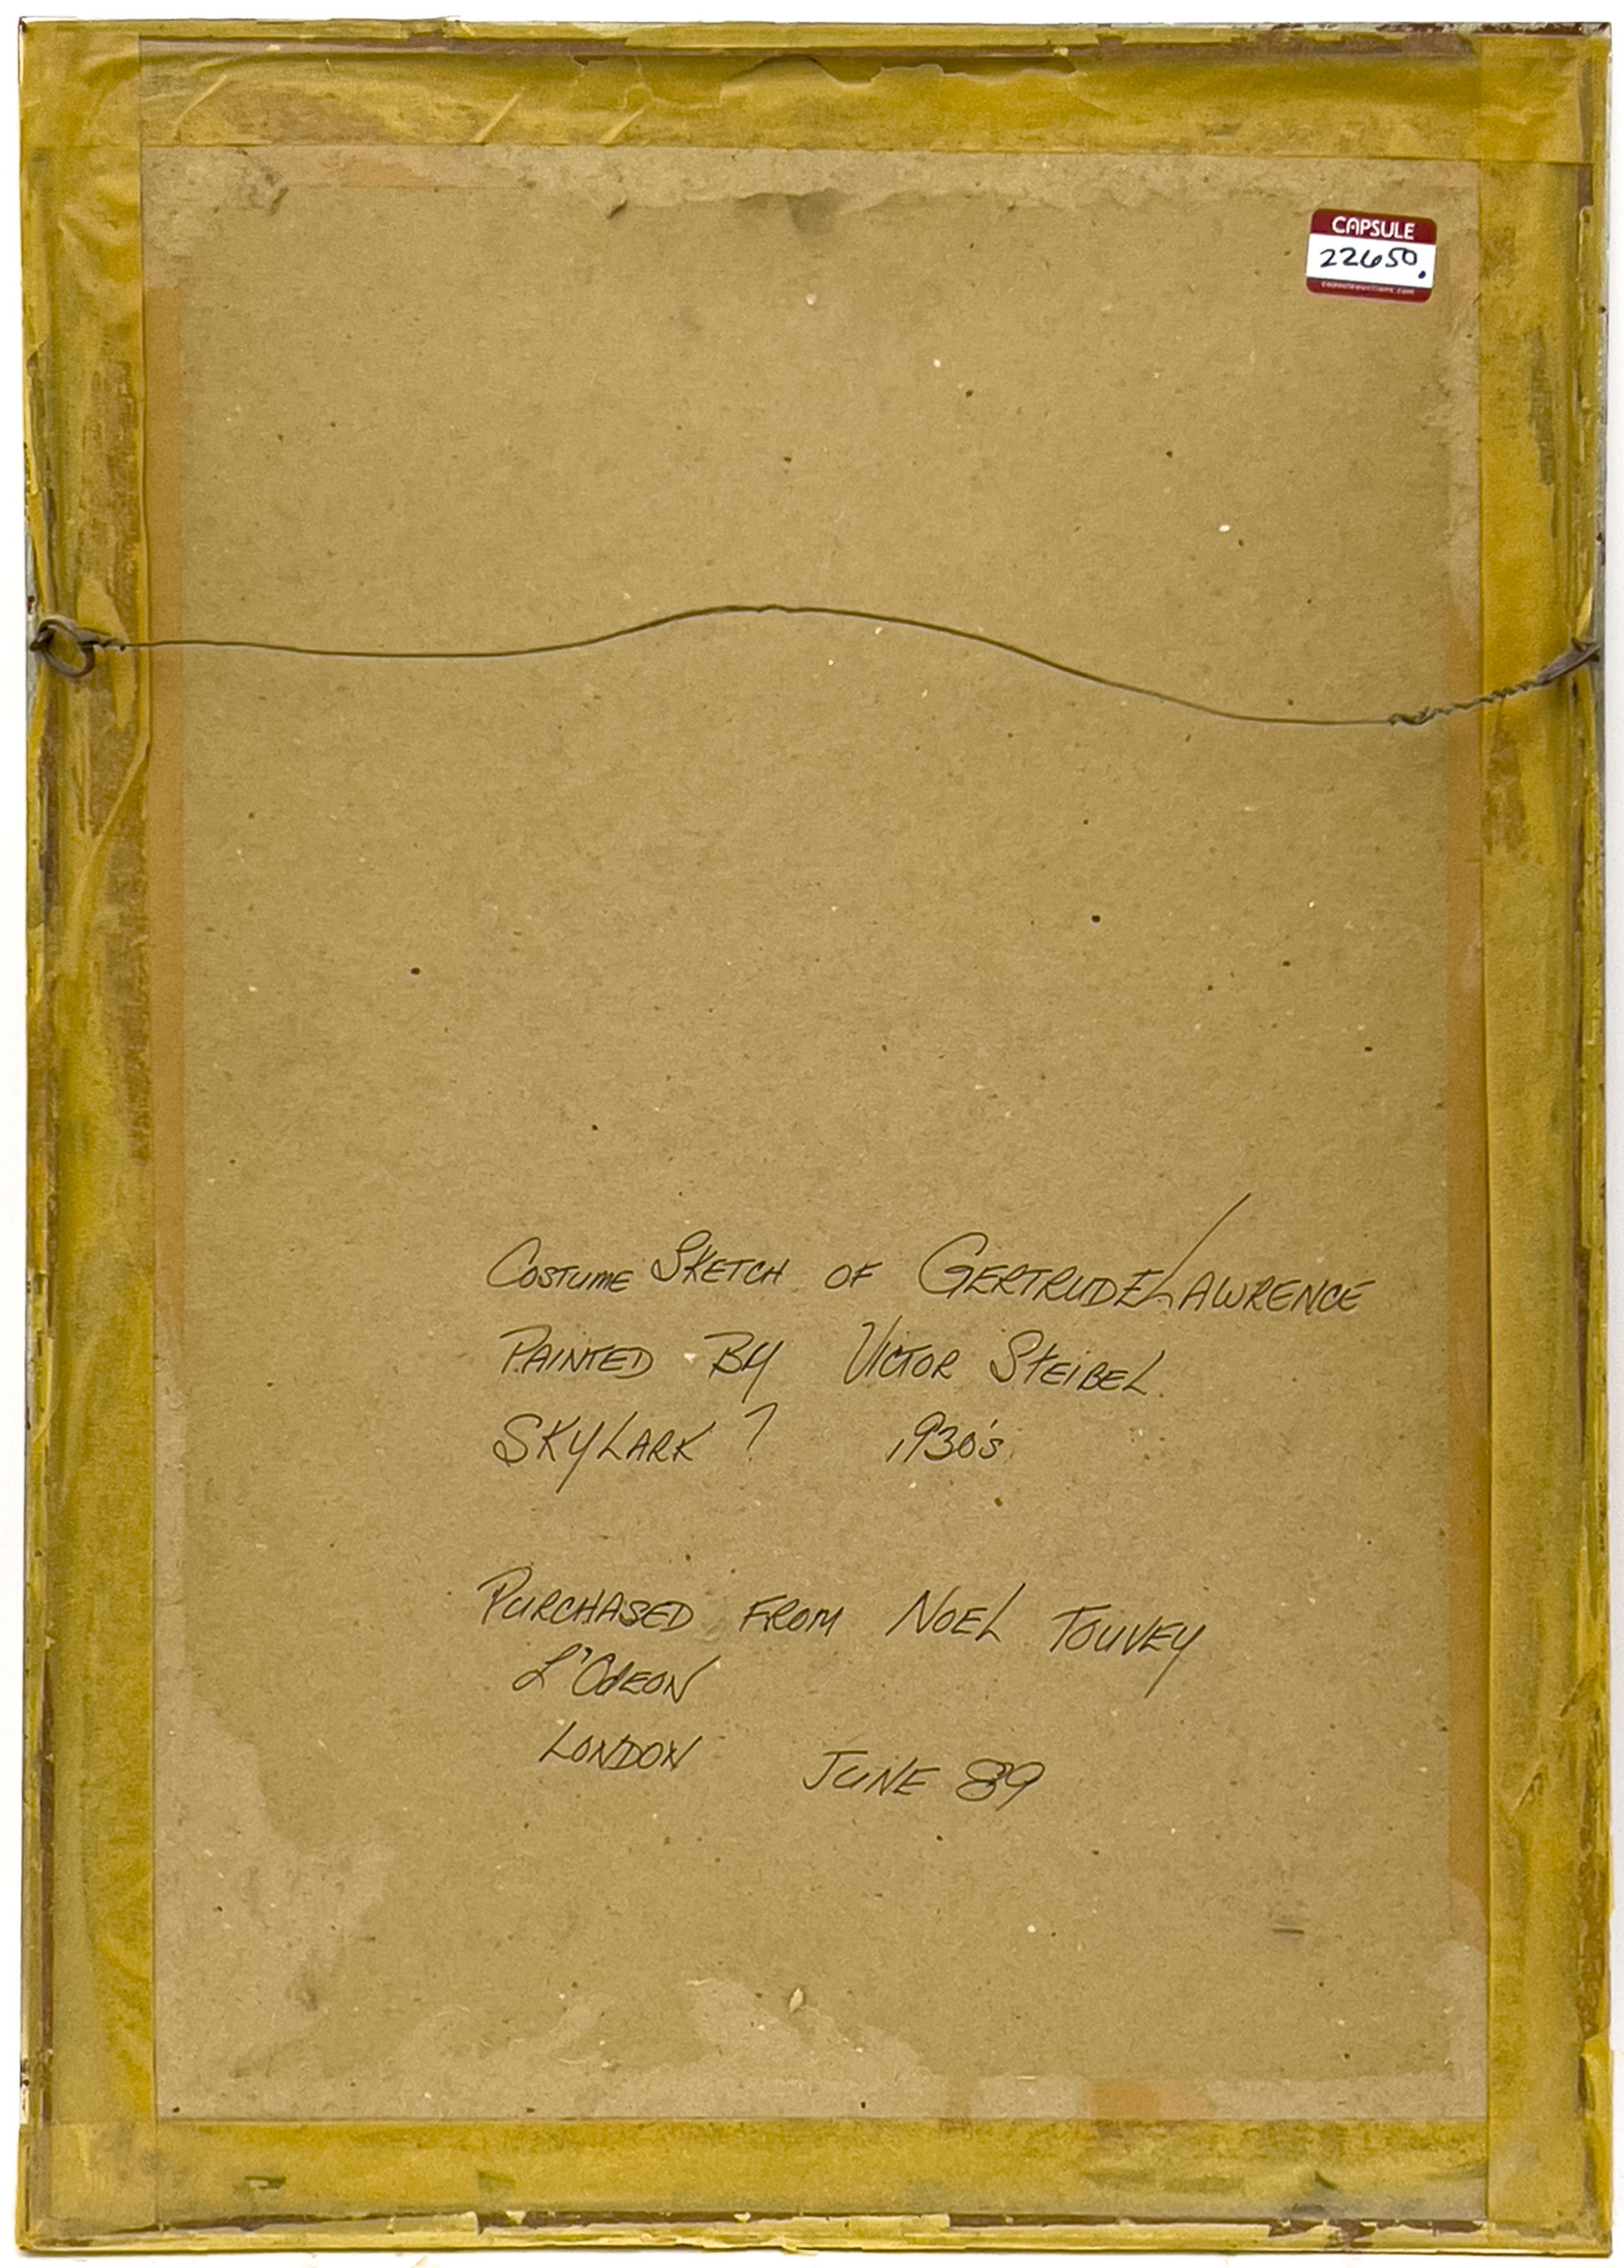 CAPSULE
22650.
capsuleauctions.com
COSTUME SKETCH OF GERTRUDE LAWRENCE
PAINTED BY VICTOR STEIBEL
SKYLARK ? 1930's
PURCHASED FROM NOEL TOUVEY
L'ODEON
LONDON JUNE 89